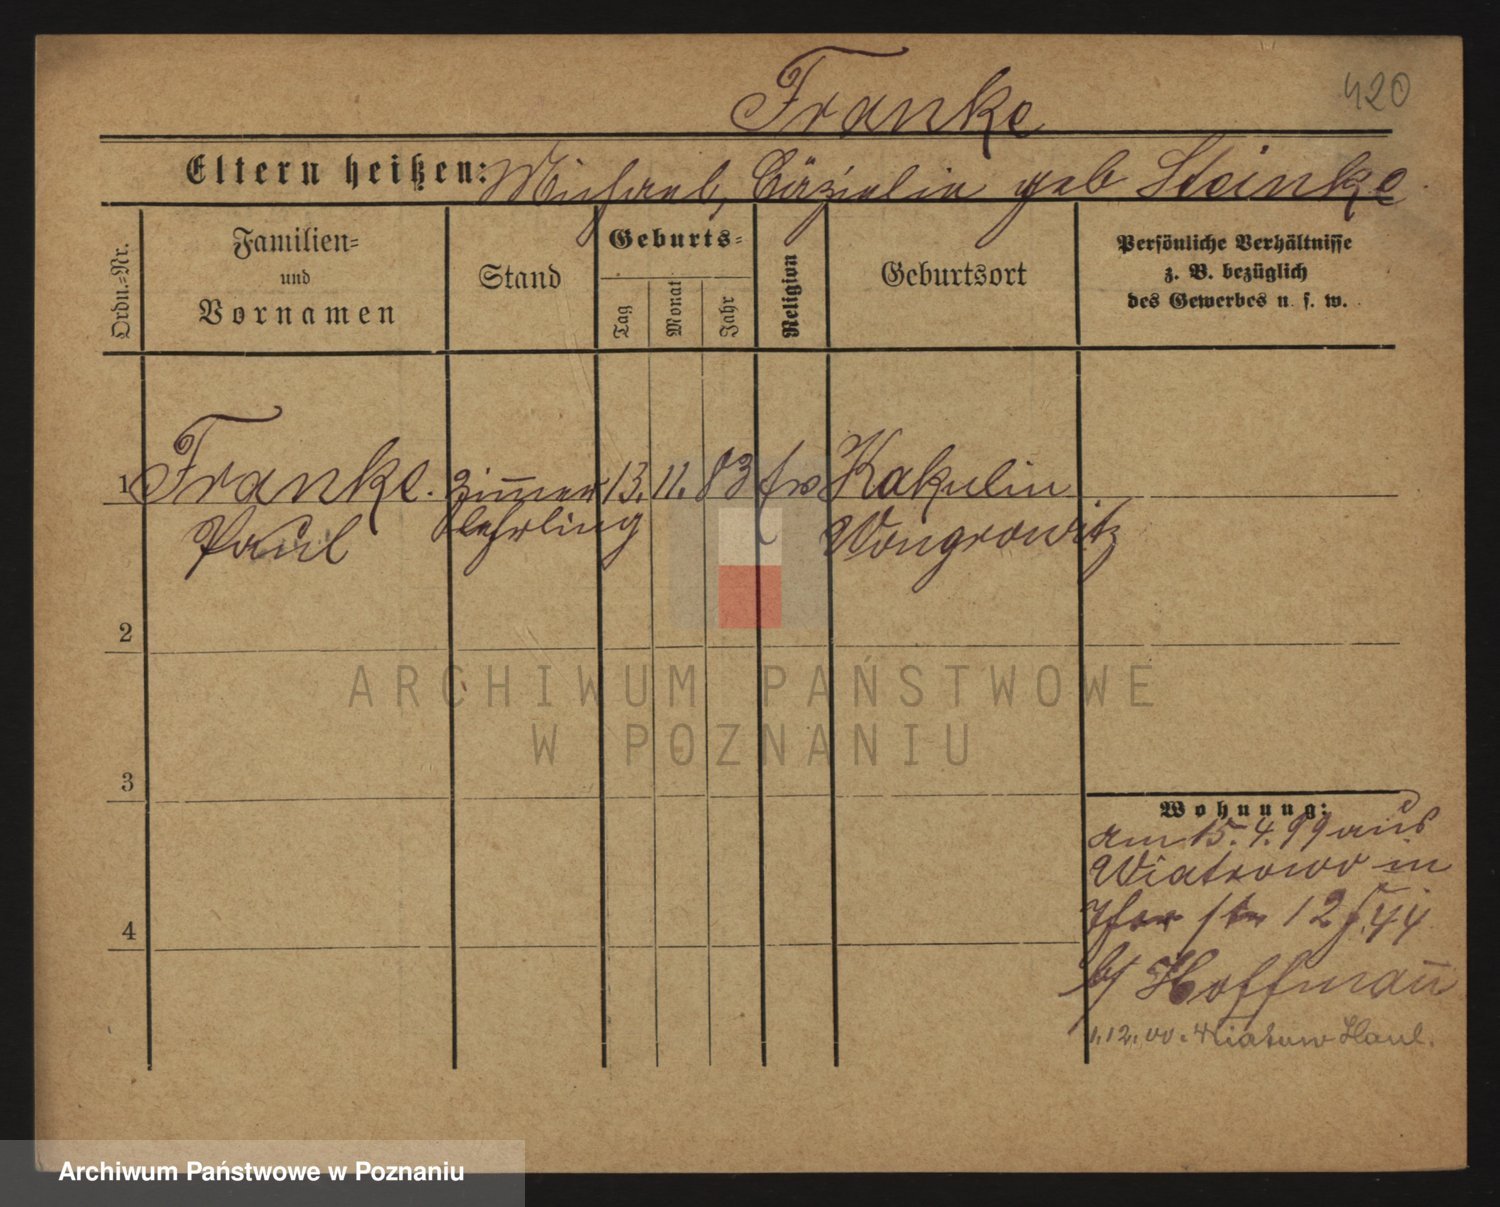 Franke
420
Eltern heißen: Michael, Cäzielie geb Steinke
Ordn.-Nr.
Familien-
und
Vornamen
Stand
Geburts-
Tag
Monat
Jahr
Religion
Geburtsort
Persönliche Verhältnisse
z. B. bezüglich
des Gewerbes u. s. w.
1 Franke. Zim̅er 13. 11. 83 Kakulin
Paul lehrling Wongrowitz
2
3
4
Wohnung:
am 15. 4. 99 aus
Wiatrowo in
12
b/ Hoffman̅
1. 12. 00.
ARCHIWUM PAŃSTWOWE
W POZNANIU
Archiwum Państwowe w Poznaniu